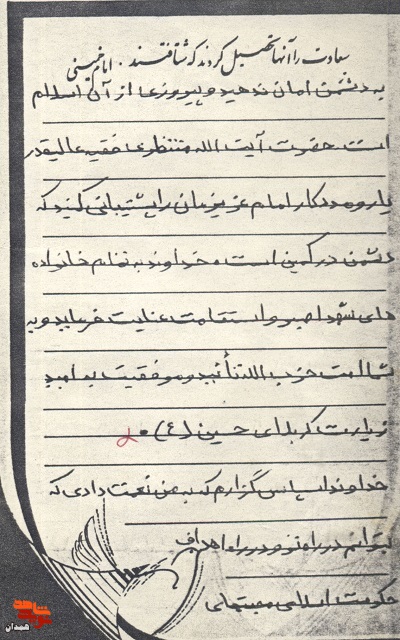 سعادت را آنها تحصیل کردند که شتافتند . امام خمینی
به دشمن امان ندهید و پیروزی از آن اسلام
است حضرت آیت الله منتظری فقیه عالیقدر
یار و مددکار امام عزیزمان را پشتیبانی کنید که
دشمن در کمین است و خداوند به تمام خانواده
های شهدا صبر و استقامت عنایت فرماید و به
شما امت حزب الله تأیید و موفقیت به امید
زیارت کربلای حسین (ع) .
خداوندا سپاس گزارم که به من نعمت دادی که
بتوانم در راه تو و در راه اهداف
حکومت اسلامی
شاهد
همدان